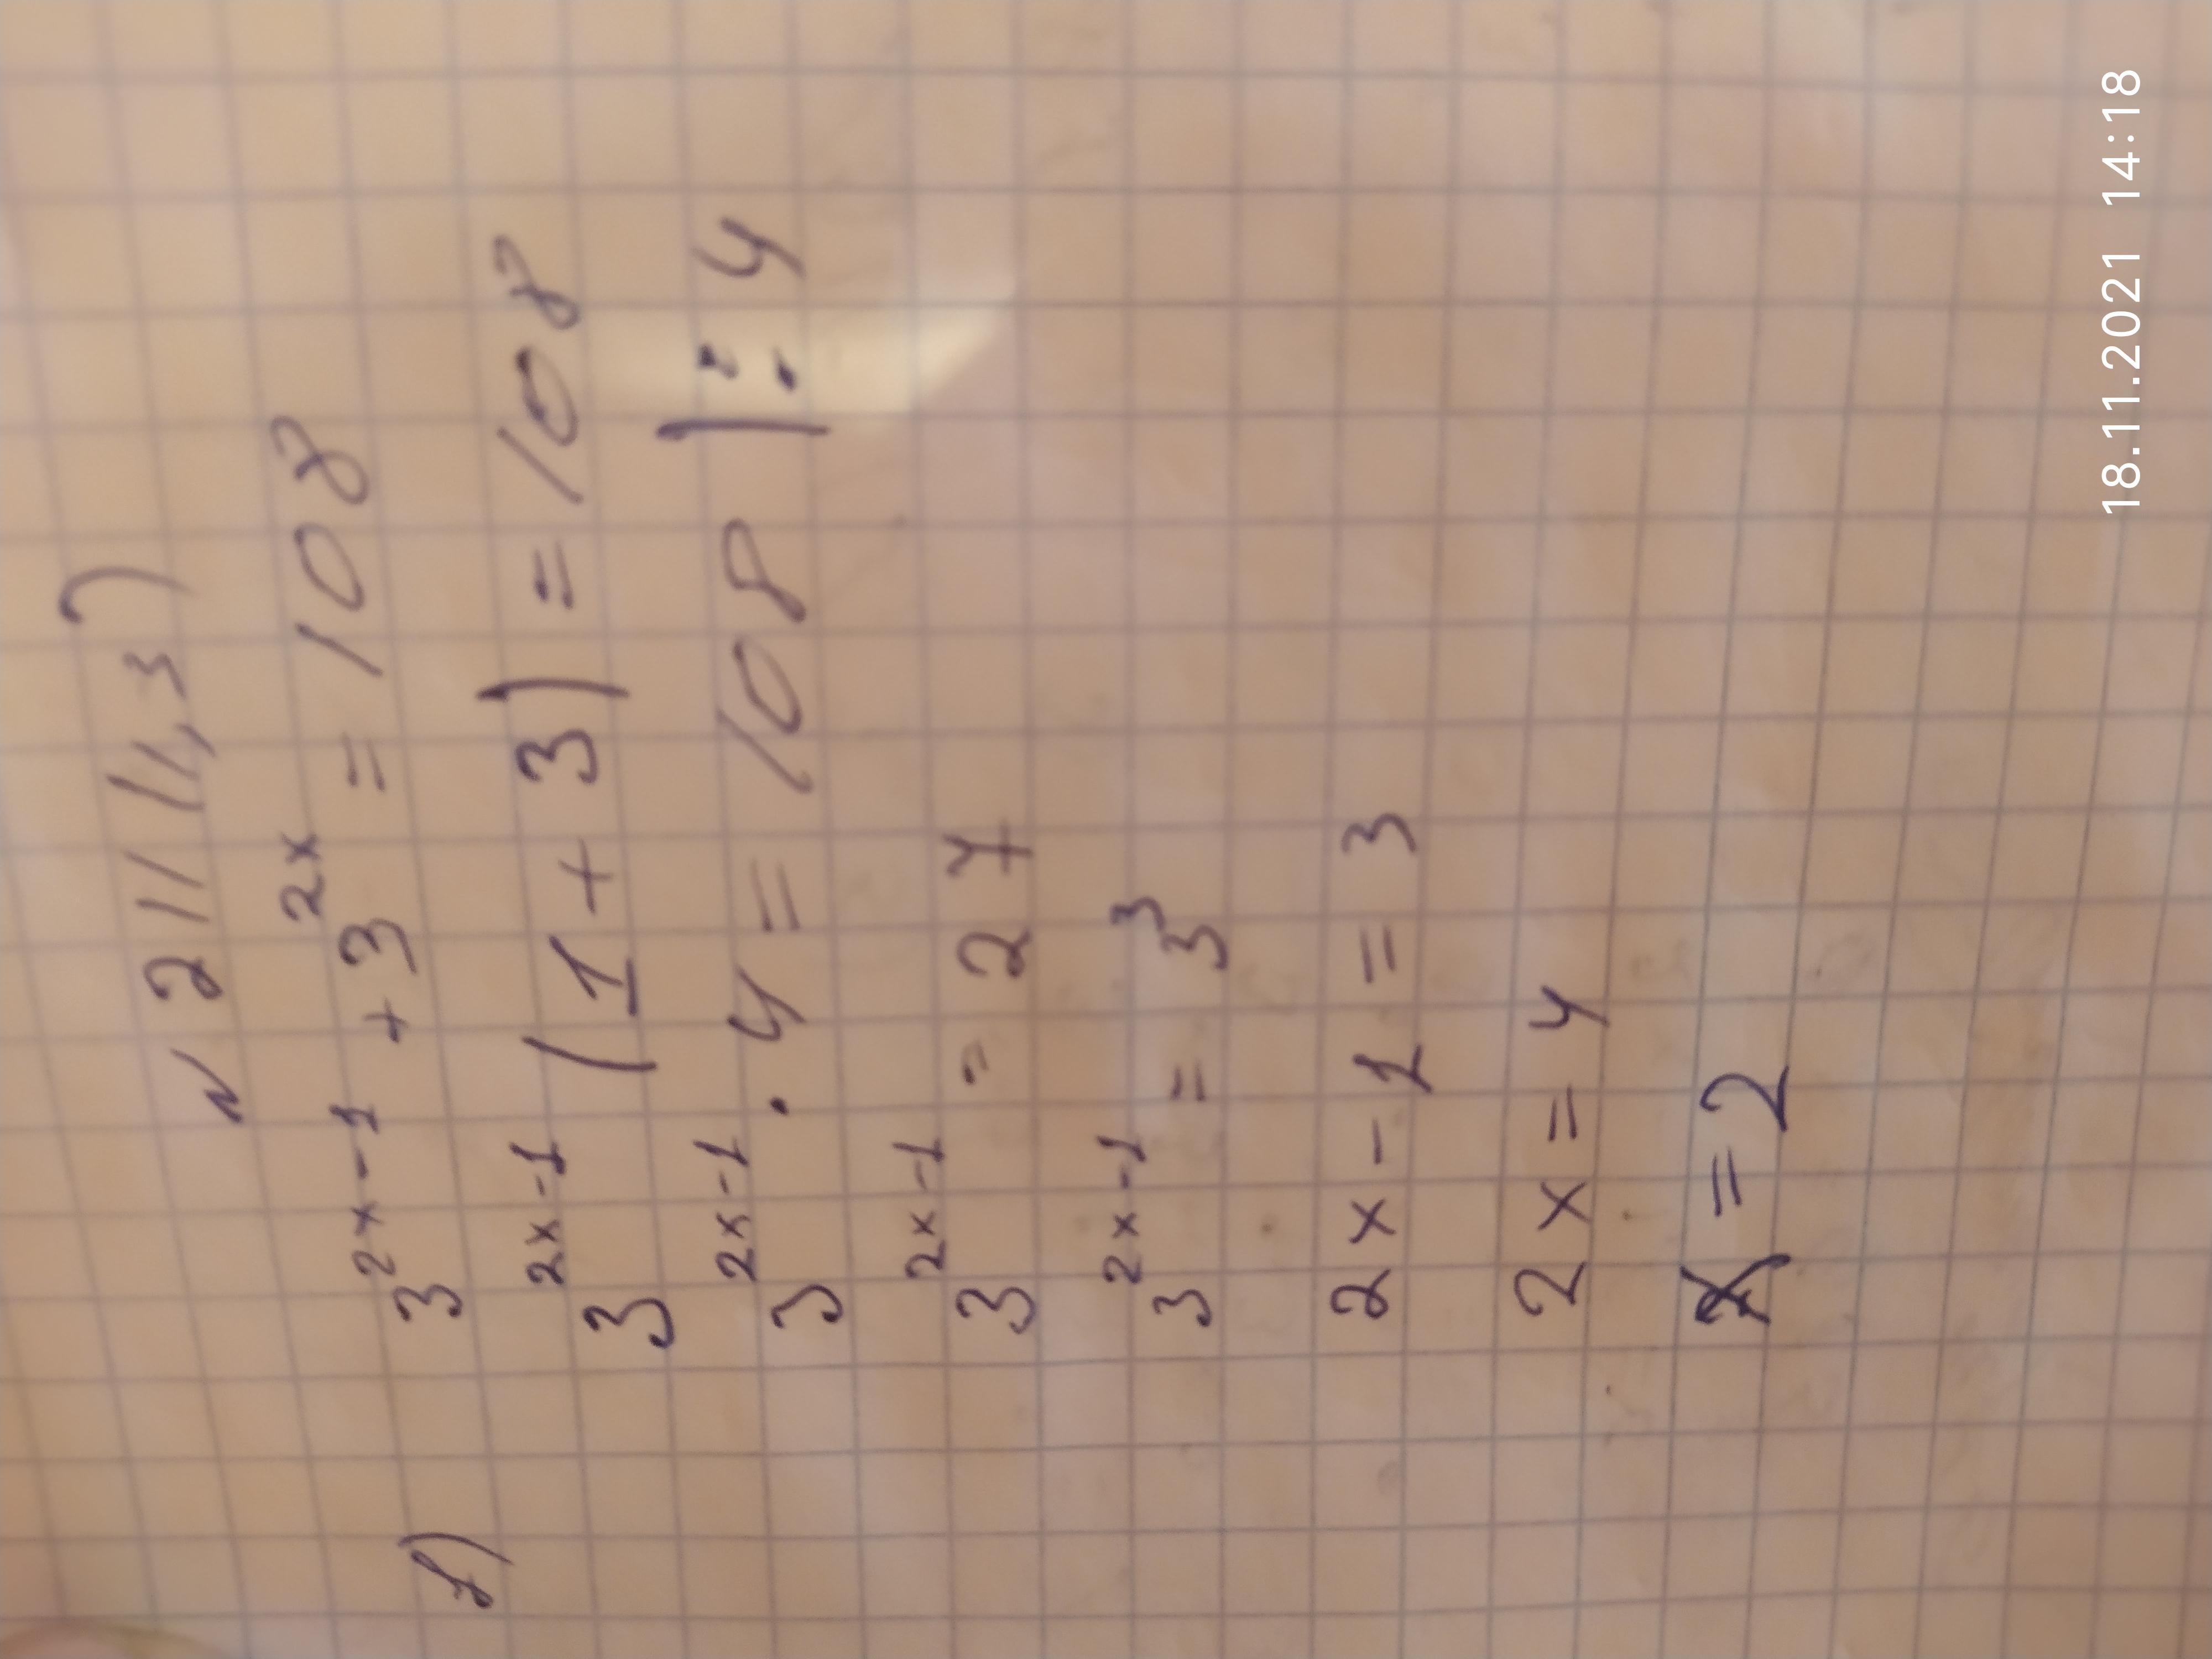 N 211 (1,3)
1) 3^{2x-1} + 3^{2x} = 108
3^{2x-1} (1 + 3) = 108
3^{2x-1} · 4 = 108 | : 4
3^{2x-1} = 27
3^{2x-1} = 3^3
2x - 1 = 3
2x = 4
x = 2
18.11.2021 14:18